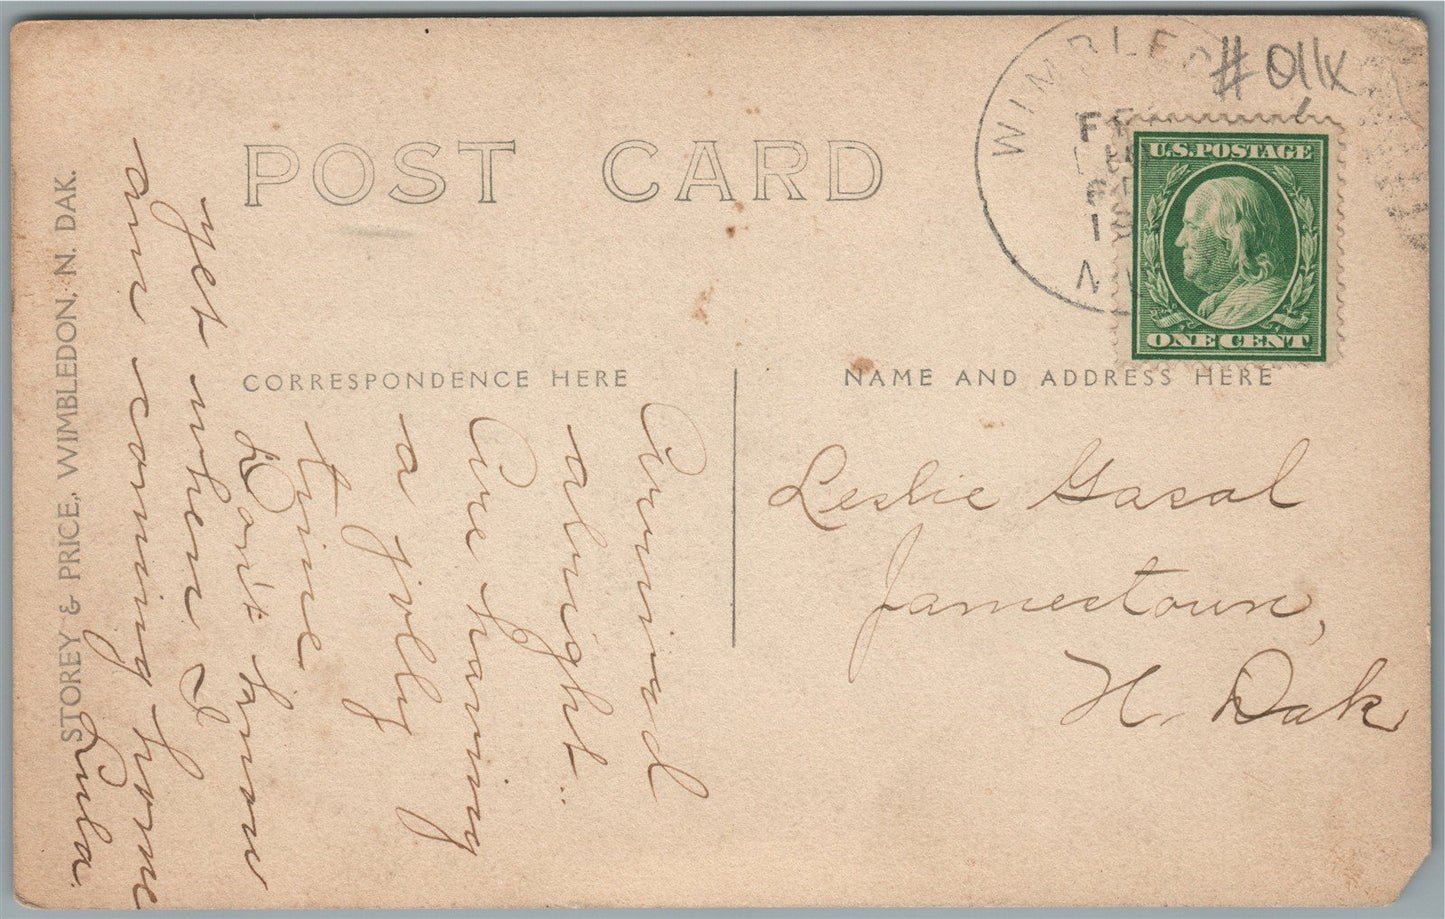 POST CARD
WIMBLED
# 011x
FE
U.S. POSTAGE
ONE CENT
CORRESPONDENCE HERE
NAME AND ADDRESS HERE
Arrived
alright..
Are having
a jolly
time
Don't know
yet when I
am coming home
Lula.
Leslie Gasal
Jamestown,
N. Dak,
STOREY & PRICE, WIMBLEDON, N. DAK.